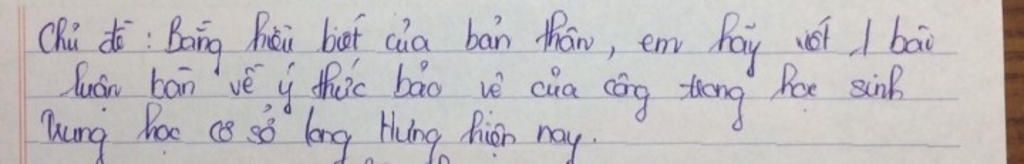 Chủ đề : Bằng hiểu biết của bản thân, em hãy viết 1 bài
luận bàn về ý thức bảo vệ của công trong học sinh
trung học cơ sở long Hưng hiện nay.